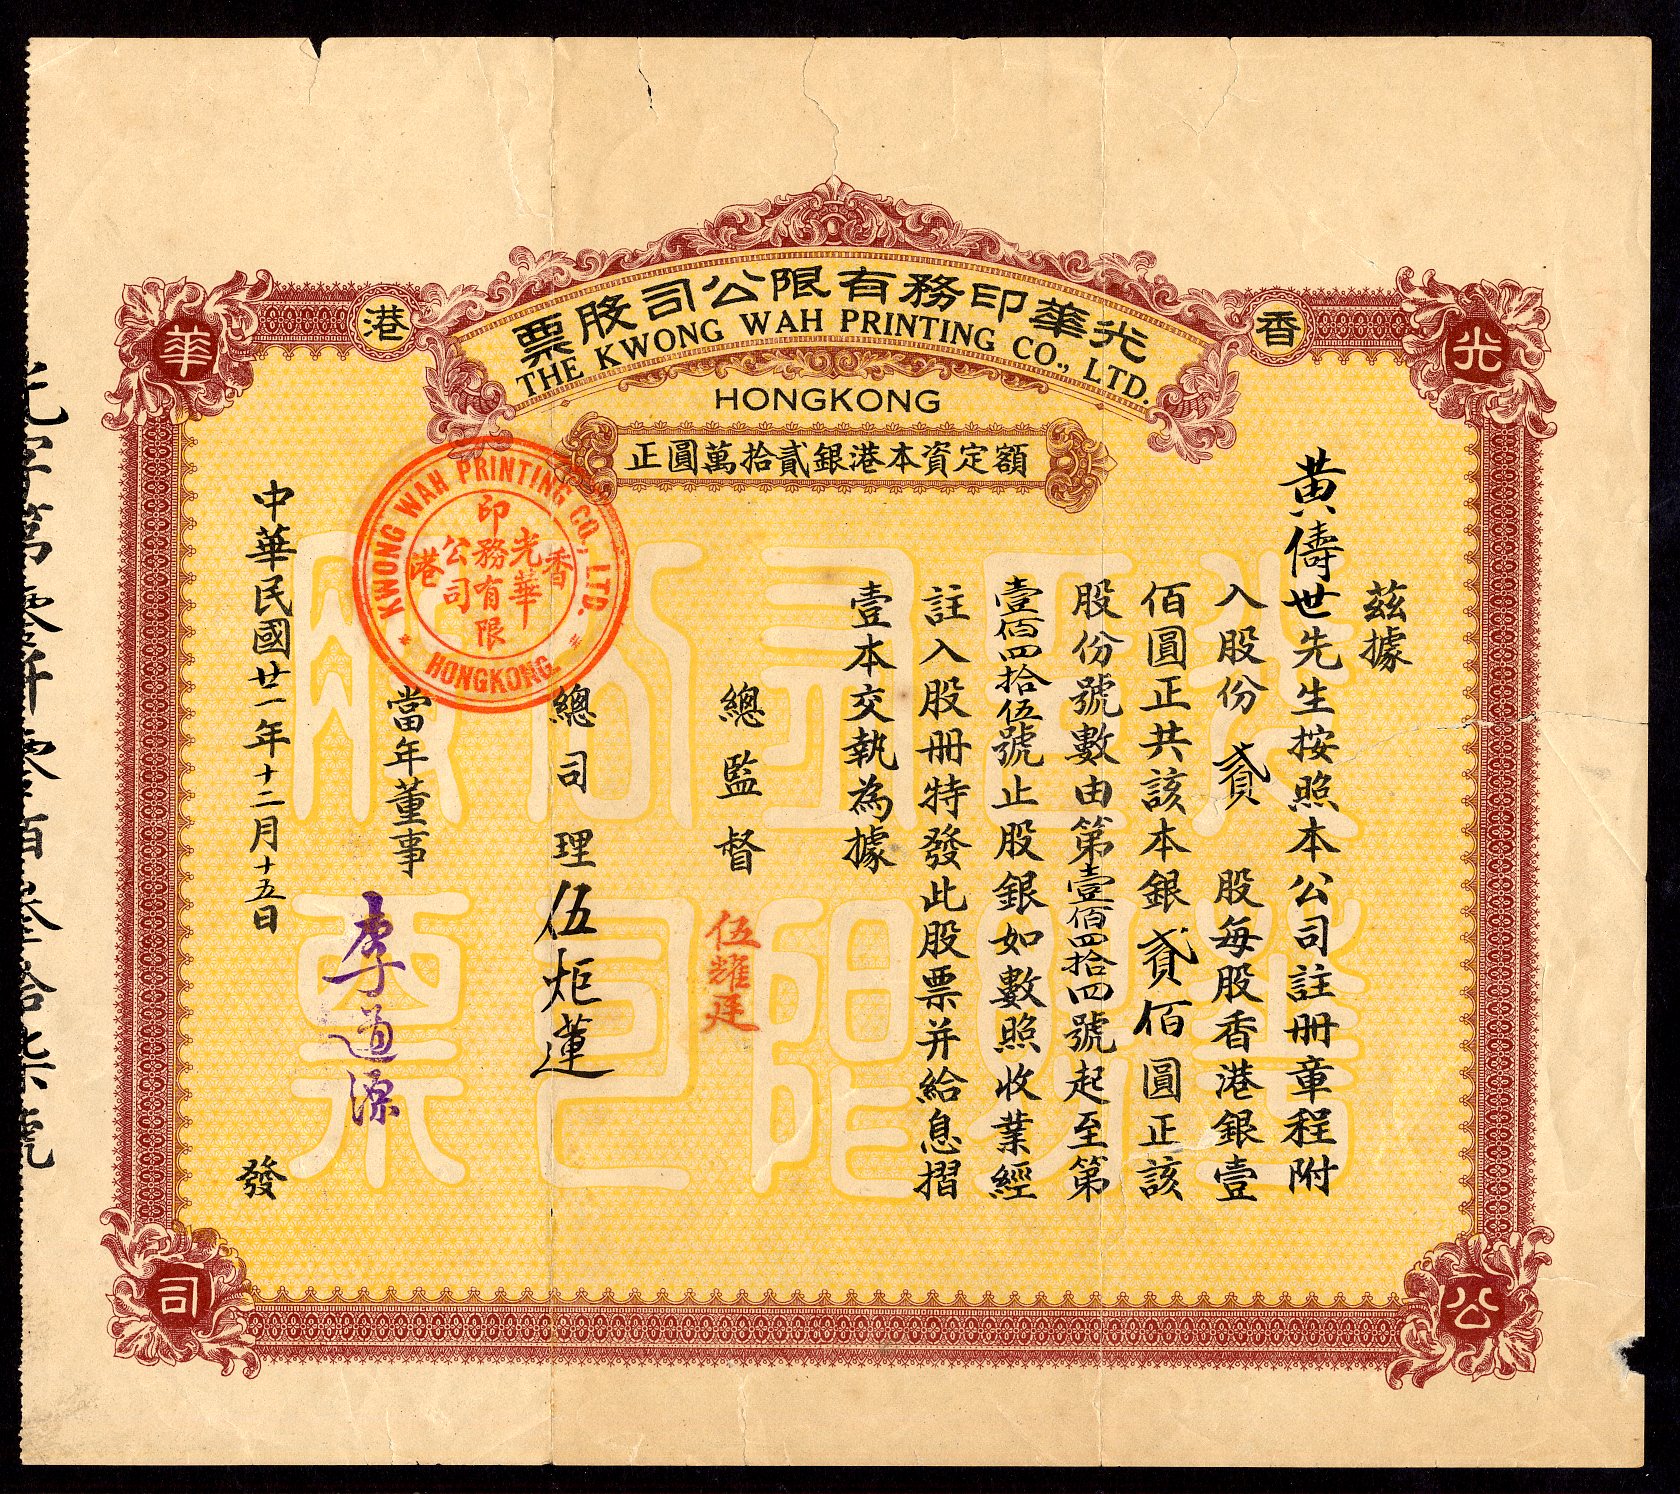 光華印務有限公司股票
THE KWONG WAH PRINTING CO., LTD.
HONGKONG
香
港
光
華
公
司
額定資本港銀貳拾萬圓正
茲據
黃儔世先生按照本公司註冊章程附
入股份貳股每股香港銀壹
佰圓正共該本銀貳佰圓正該
股份號數由第壹佰四拾四號起至第
壹佰四拾伍號止股銀如數照收業經
註入股冊特發此股票并給息摺
壹本交執為據
總監督 伍耀廷
總司理 伍炬蓮
當年董事 李道源
中華民國廿一年十二月十五日 發
KWONG WAH PRINTING CO., LTD.
HONGKONG.
香港
光華
印務有限
公司
光華印務有限公司股票
光字第零仟零百叁拾柒號